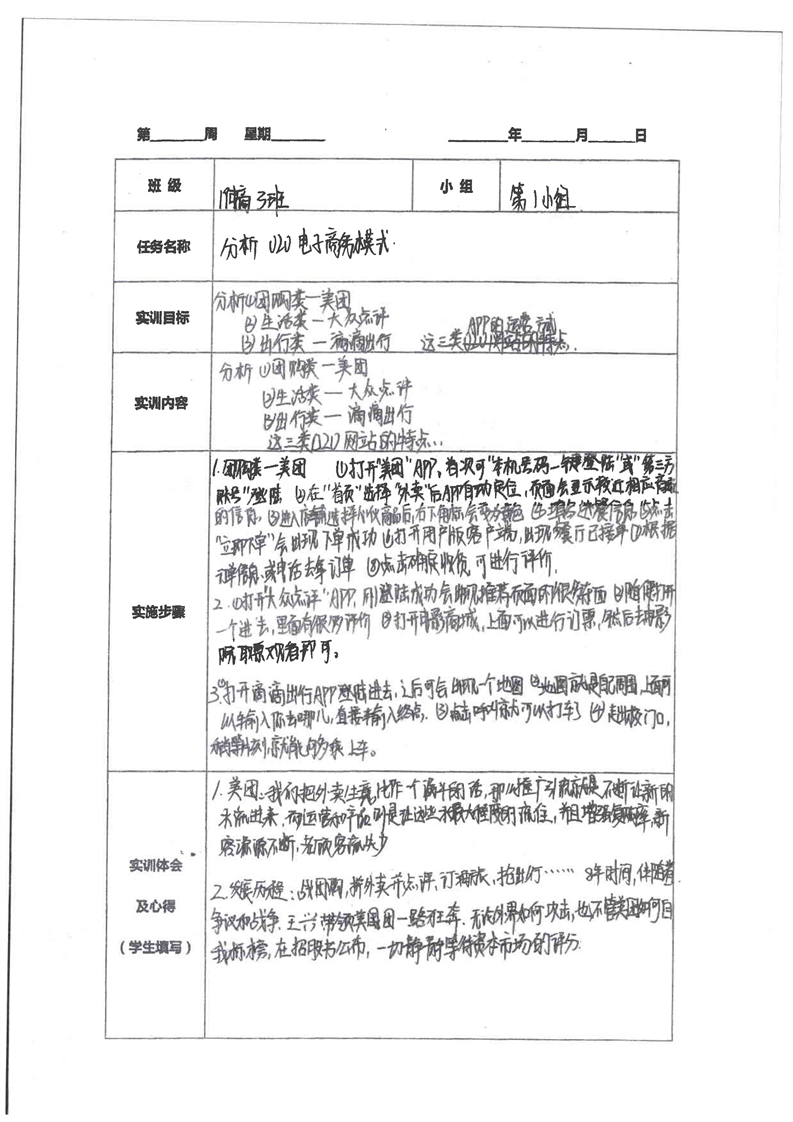 第 周 星期 年 月 日
班级 17电商3班 小组 第1小组
任务名称 分析O2O电子商务模式.
实训目标 分析(1)团购类一美团
(2)生活类一大众点评
(3)出行类一滴滴出行 这三类O2O网站的特点.
APP的运营模式
实训内容 分析(1)团购类一美团
(2)生活类一大众点评
(3)出行类一滴滴出行
这三类O2O网站的特点...
实施步骤
1.团购类一美团 ①打开"美团"APP,首次可"本机号码一键登陆"或"第三方
账号"登陆 ②在"首页"选择"外卖"后APP自动定位,页面会显示较近相应商家
的信息. ③进入店铺选择 商品后,右下角标会变 色 ④ 信息 ⑤点击
"立即下单"会出现下单成功 ⑥打开用户版客户端,出现餐厅已接单 ⑦根据
订单信息,或电话去拿订单 ⑧点击确定收货,可进行评价.
2. ①打开"大众点评"APP,刚登陆成功会出现推荐页面有很多方面 ②随便打开
一个进去,里面有很多评价 ③打开电影商城,上面可以进行订票,然后去电影
院取票观看即可。
3.①打开滴滴出行APP登陆进去,之后可会出现一个地图 ②地图就是配周围,上面可
以去输入你去哪儿,直接去输入终点. ③点击呼叫就可以打车了 ④走出校门口,
稍等片刻就能够乘上车。
实训体会
及心得
(学生填写)
1.美团:我们把外卖生意比作一个漏斗的话,那么推广引流就是不断让新的
水流进来,而运营和产品则是让这些水最大程度的流住,并且增强复购率,新
客源源不断,老顾客流失少
2.发展历程:战团购,拆外卖并点评,订酒旅,抢出行…… 8年时间,伴随着
争议和战争.王兴带领美团一路狂奔.无论外界如何攻击,也不管美团如何自
我标榜,在招股书公布,一切静静等待资本市场的评分.